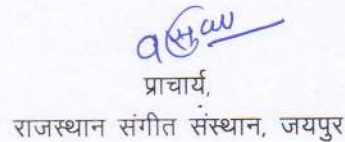 प्राचार्य,
राजस्थान संगीत संस्थान, जयपुर